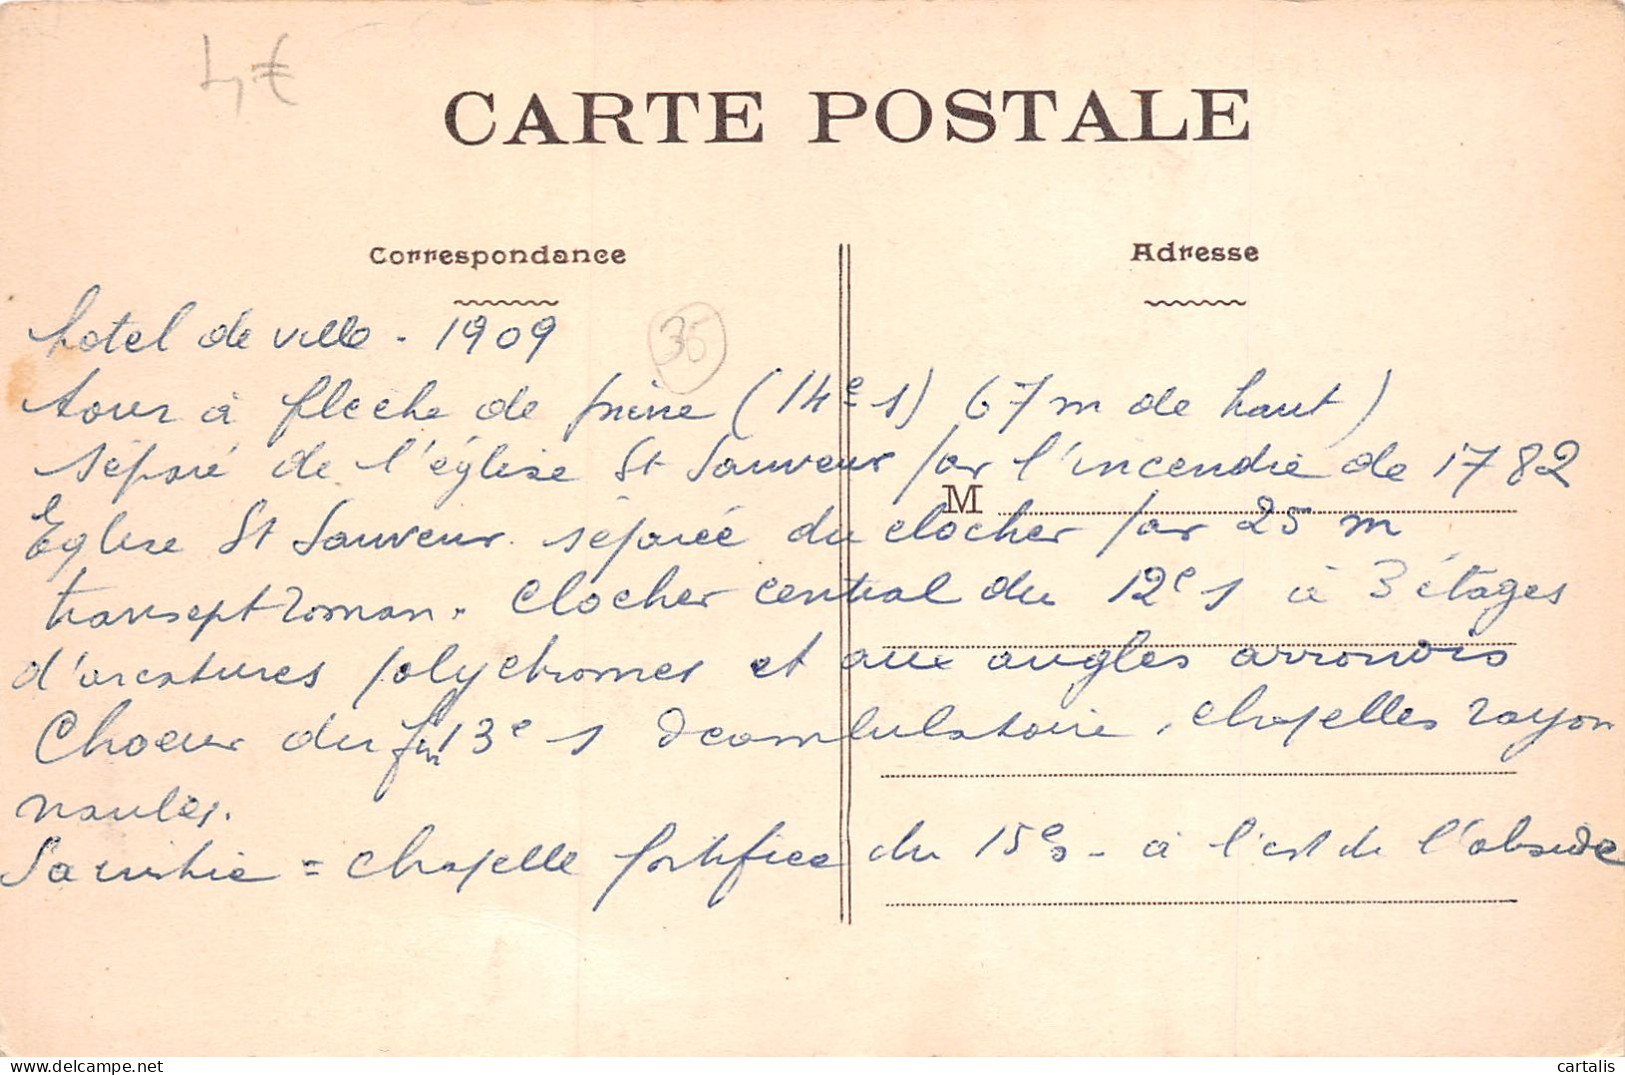 4,€
CARTE POSTALE
Correspondance
Adresse
hotel de ville - 1909
35
tour à flèche de pierre (14e s) 67 m de haut)
séparé de l'église St Sauveur par l'incendie de 1782
M
Eglise St Sauveur séparée du clocher par 25 m
transept roman. clocher central du 12e s à 3 étages
d'arcatures polychromes et aux angles arrondis
Choeur du fin 13e s déambulatoire, chapelles rayon
nantes.
Sacristie = chapelle fortifiée du 15e s - à l'est de l'abside
cartalis